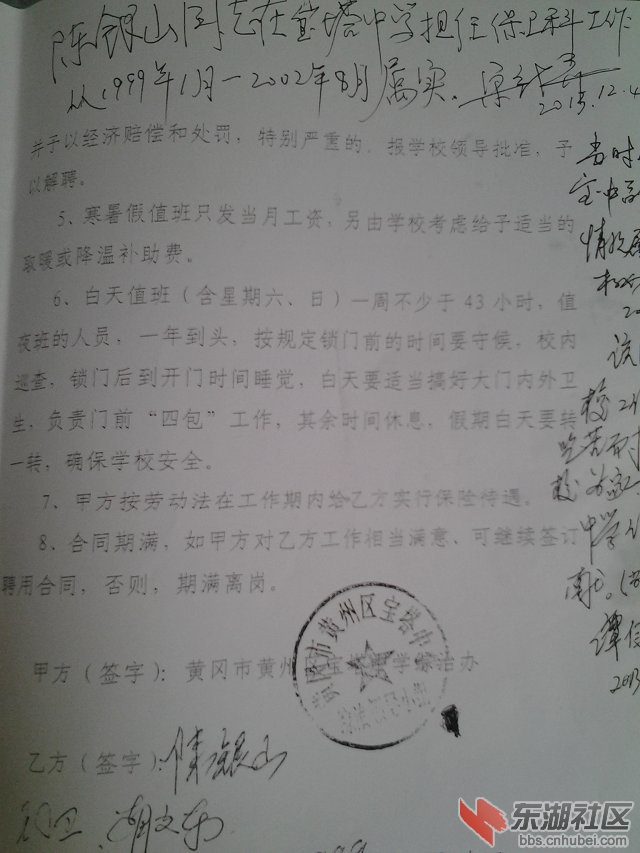 陈银山同志在宝塔中学担任保卫科工作
从1999年1月-2002年8月属实.
2013.12.4
并于以经济赔偿和处罚，特别严重的，报学校领导批准，予
以解聘。
5、寒暑假值班只发当月工资，另由学校考虑给予适当的
取暖或降温补助费。
6、白天值班（含星期六、日）一周不少于43小时，值
夜班的人员，一年到头，按规定锁门前的时间要守候，校内
巡查，锁门后到开门时间睡觉，白天要适当搞好大门内外卫
生，负责门前“四包”工作，其余时间休息，假期白天要转
一转，确保学校安全。
7、甲方按劳动法在工作期内给乙方实行保险待遇。
8、合同期满，如甲方对乙方工作相当满意、可继续签订
聘用合同，否则，期满离岗。
甲方（签字）：黄冈市黄州区宝塔中学综治办
乙方（签字）：陈银山
当时
情况属
中学
2013
黄冈市黄州区宝塔中
东湖社区
bbs.cnhubei.com